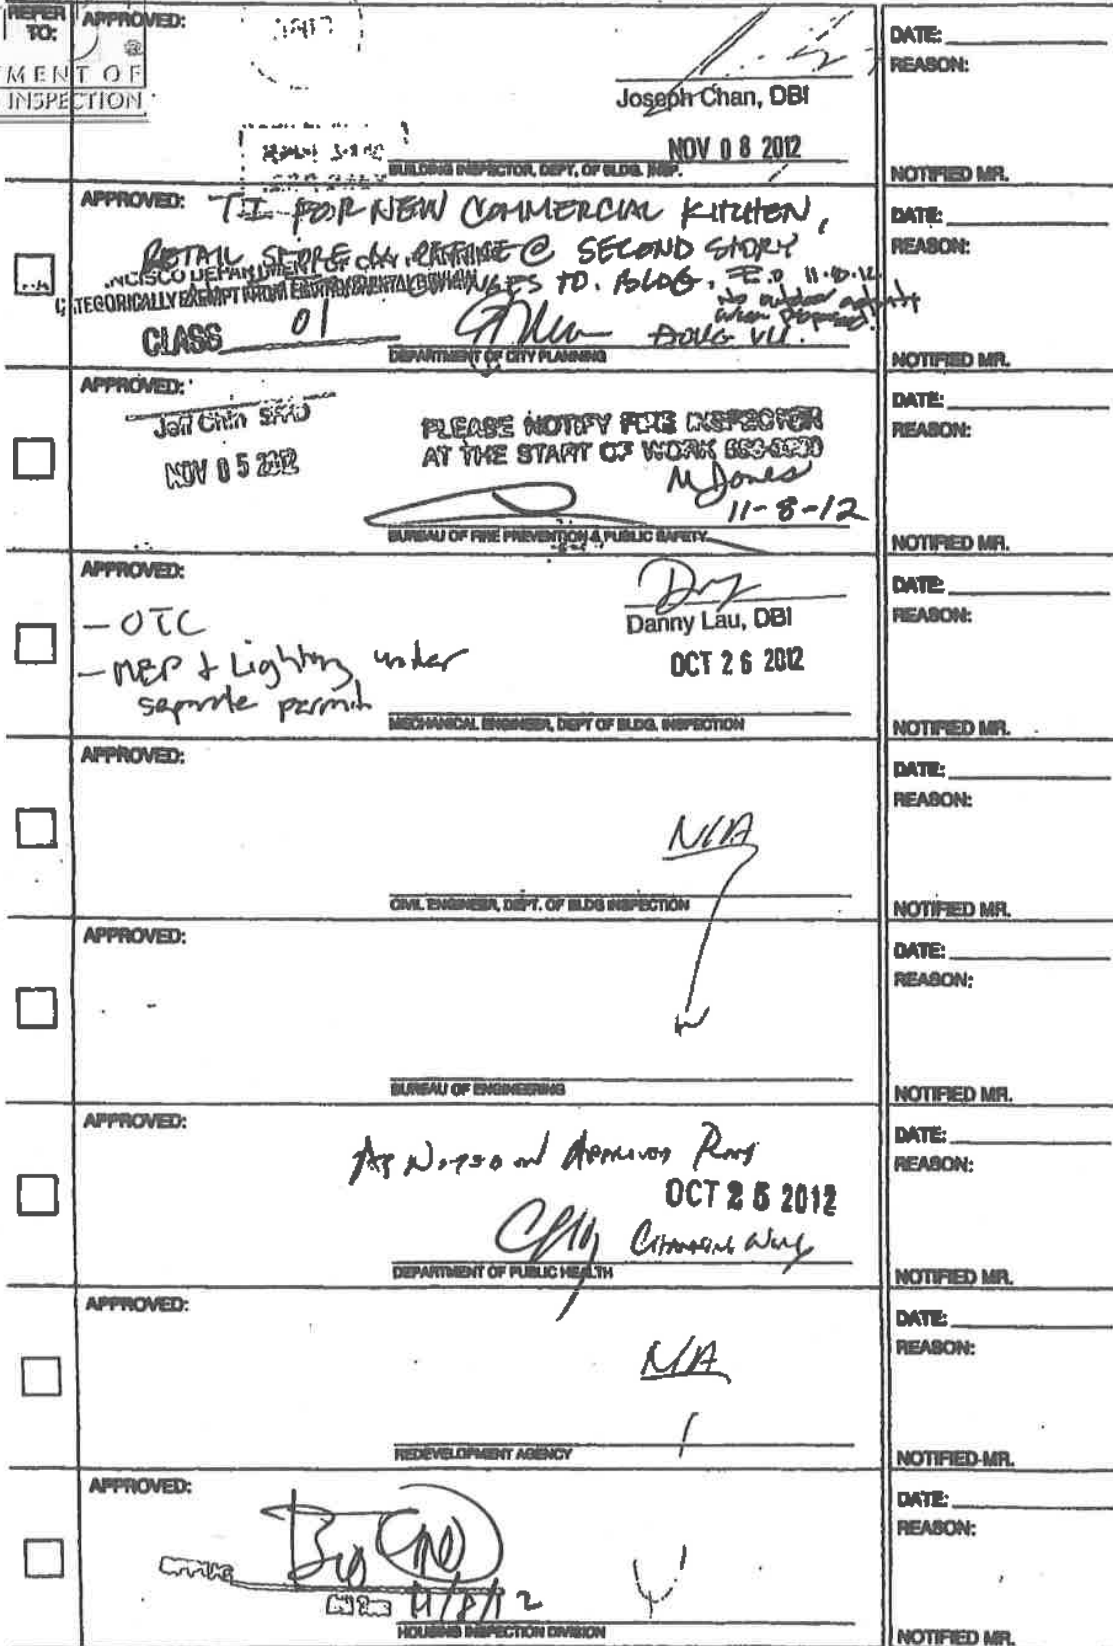 REFER TO:
MENT OF
INSPECTION
APPROVED:
Joseph Chan, DBI
NOV 08 2012
BUILDING INSPECTOR, DEPT. OF BLDG. INSP.
DATE:
REASON:
NOTIFIED MR.
APPROVED: TI FOR NEW COMMERCIAL KITCHEN,
RETAIL @ SECOND STORY
TO BLDG.
No outdoor activity
CLASS 01
DOUG VU.
DEPARTMENT OF CITY PLANNING
DATE:
REASON:
NOTIFIED MR.
APPROVED:
Jeff Chin SFFD
NOV 05 2012
PLEASE NOTIFY FIRE INSPECTOR
AT THE START OF WORK
M Jones
11-8-12
BUREAU OF FIRE PREVENTION & PUBLIC SAFETY
DATE:
REASON:
NOTIFIED MR.
APPROVED:
- OTC
- MEP + Lighting under
separate permit
Danny Lau, DBI
OCT 26 2012
MECHANICAL ENGINEER, DEPT OF BLDG. INSPECTION
DATE:
REASON:
NOTIFIED MR.
APPROVED:
N/A
CIVIL ENGINEER, DEPT. OF BLDG INSPECTION
DATE:
REASON:
NOTIFIED MR.
APPROVED:
BUREAU OF ENGINEERING
DATE:
REASON:
NOTIFIED MR.
APPROVED:
As Noted on Approved Plans
OCT 25 2012
DEPARTMENT OF PUBLIC HEALTH
DATE:
REASON:
NOTIFIED MR.
APPROVED:
N/A
REDEVELOPMENT AGENCY
DATE:
REASON:
NOTIFIED MR.
APPROVED:
11/8/12
HOUSING INSPECTION DIVISION
DATE:
REASON:
NOTIFIED MR.